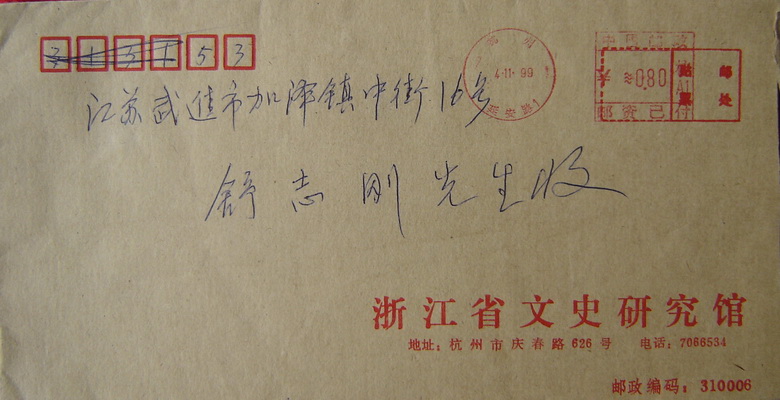 3 1 5 1 5 3
杭州
4-11-99
延安路1
中国邮政
¥ ≈0.80
邮资已付
贴邮
票处
江苏武进市加泽镇中街16号
舒志刚先生收
浙江省文史研究馆
地址:杭州市庆春路626号 电话:7066534
邮政编码:310006